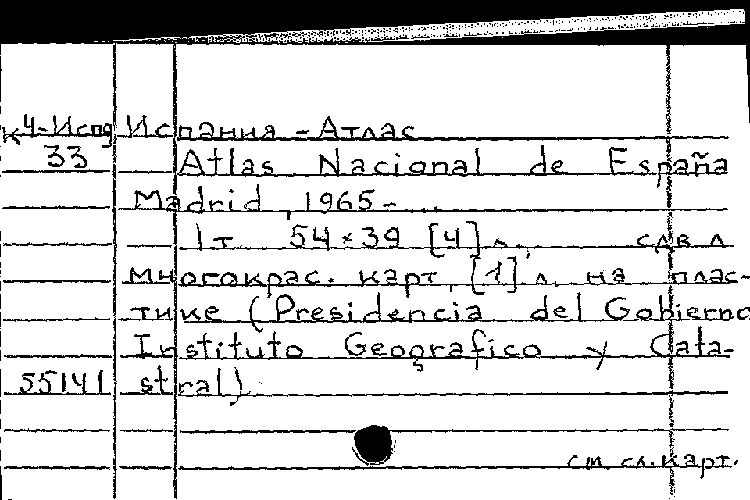 К4-Исп Испания - Атлас
33 Atlas Nacional de España
Madrid, 1965 - ...
1 т 54×39 [4] л., сдв л
многокрас. карт, [1] л. на плас-
тике (Presidencia del Gobierno
Instituto Geografico y Cata-
55141 stral).
см. сл. карт.